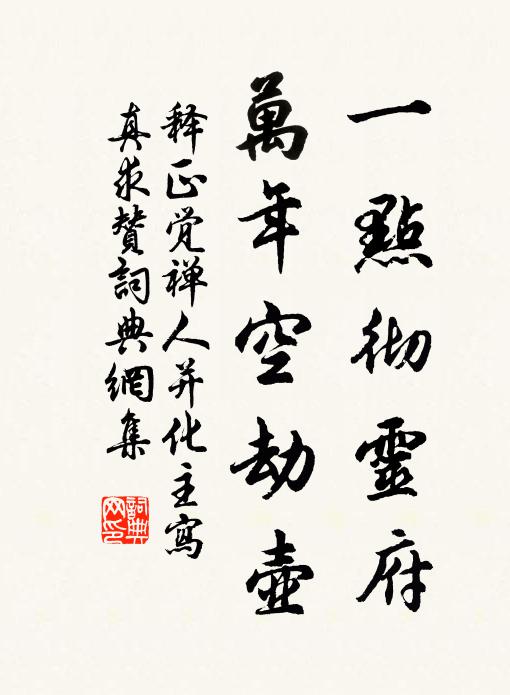 一點彻靈府
萬年空劫壺
释正觉禅人并化主寫
真求贊詞典網集
詞典
网印